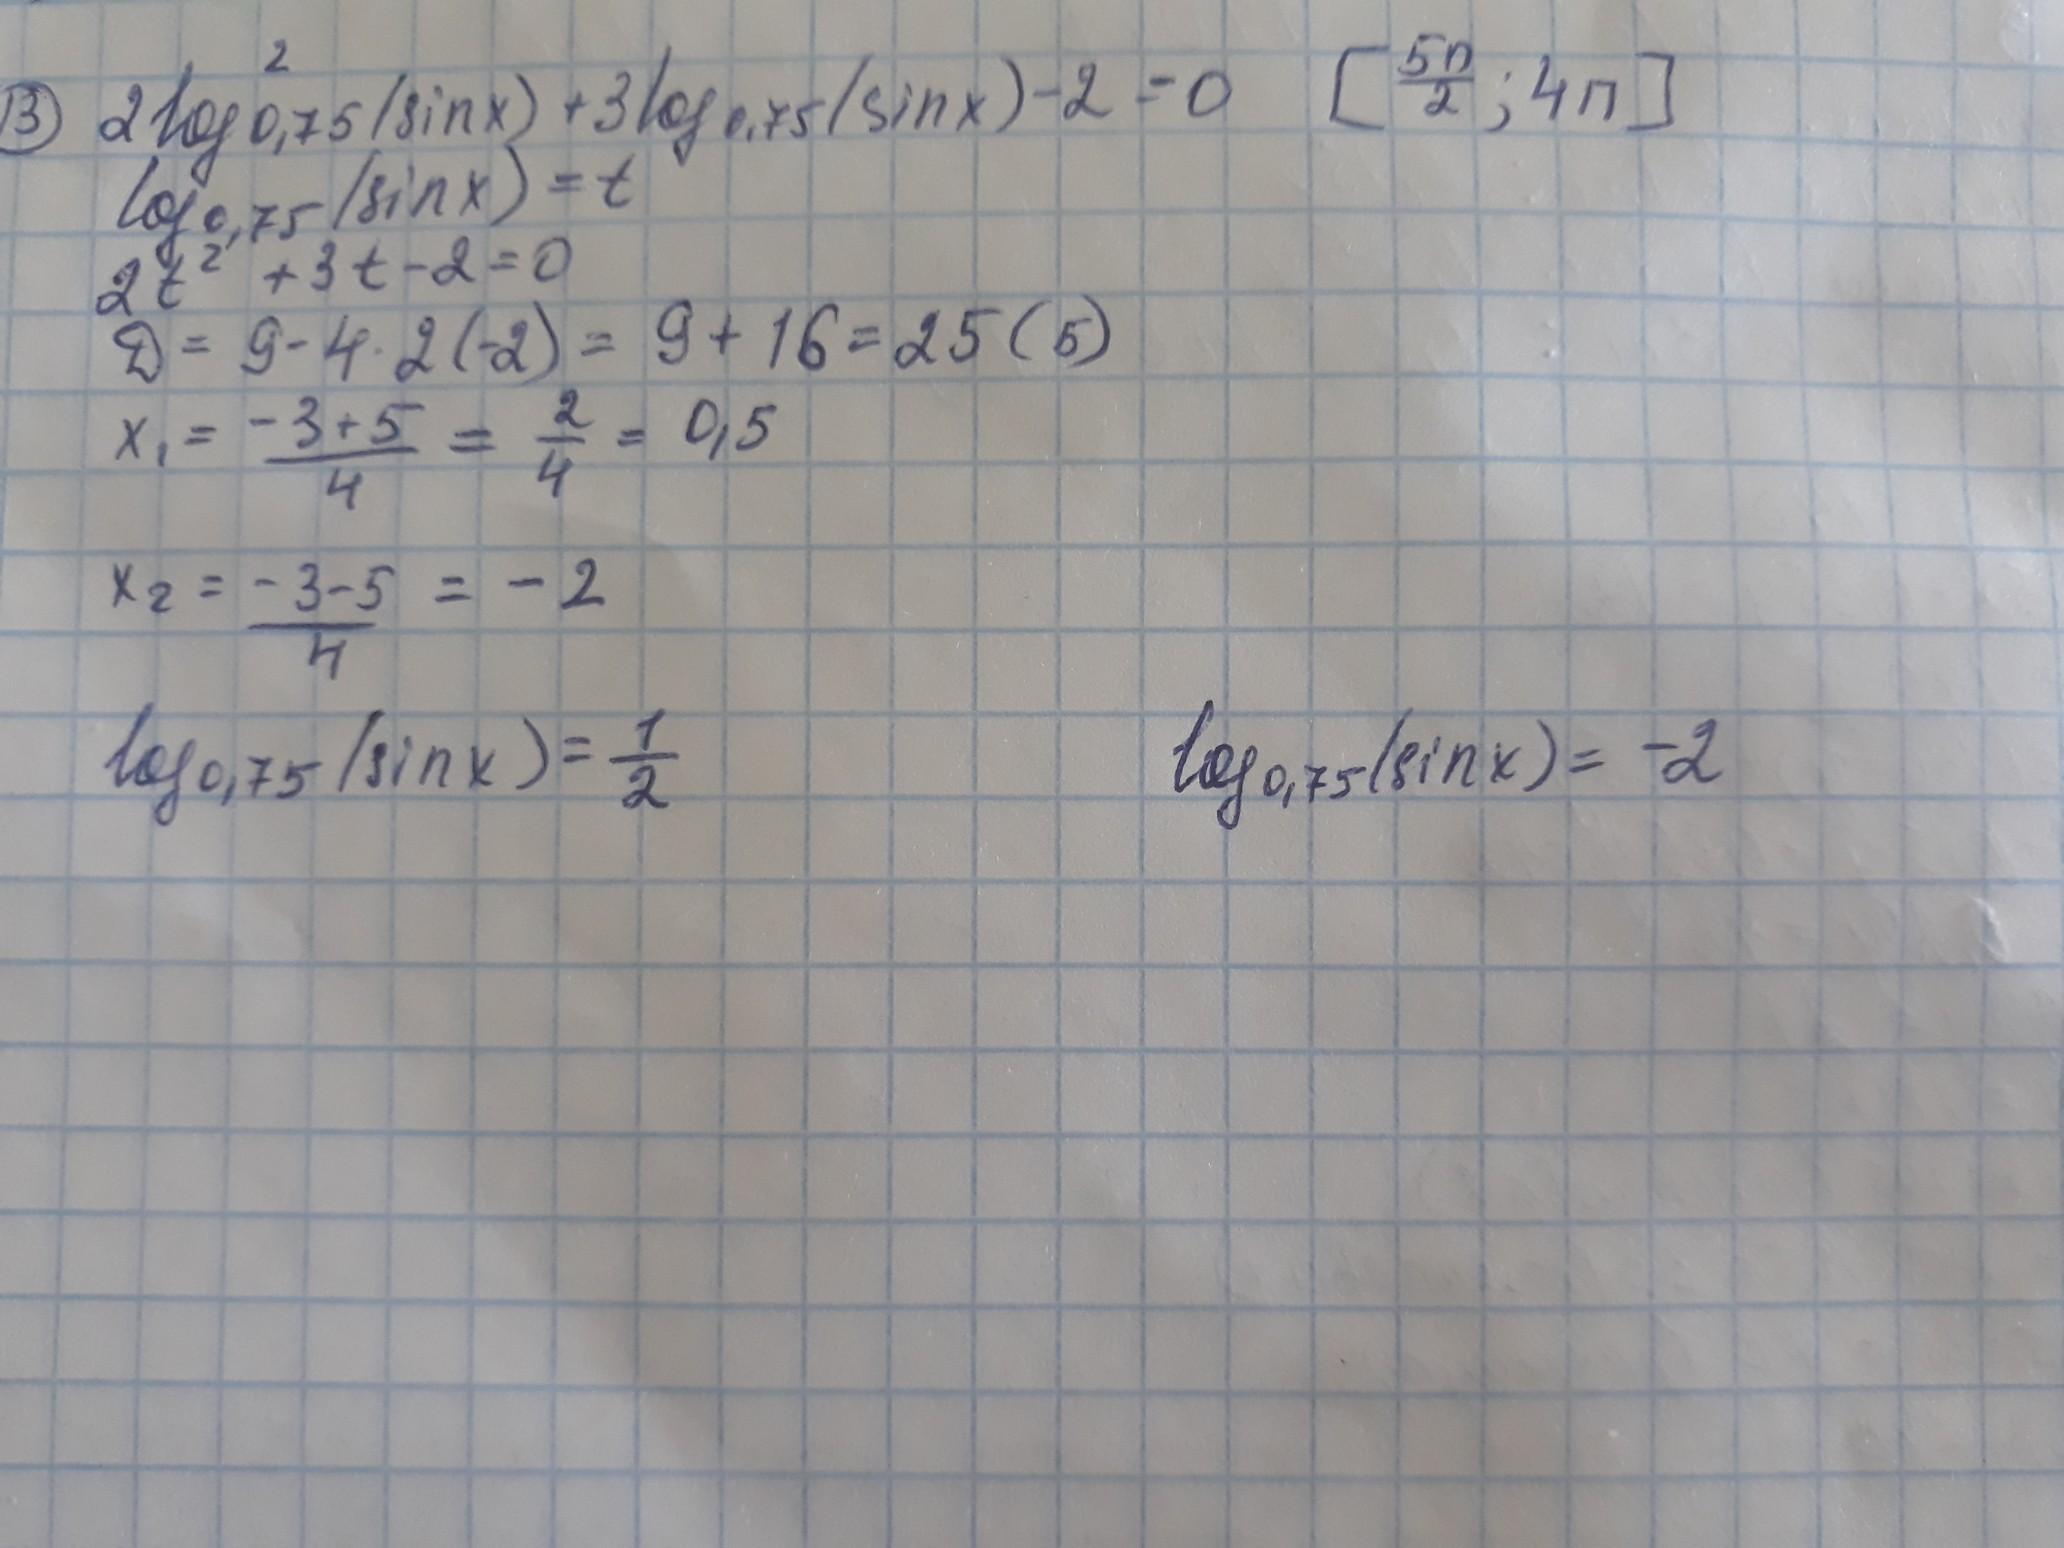 13) 2log²0,75(sinx)+3log0,75(sinx)-2=0 [5π/2; 4π]
log0,75(sinx)=t
2t²+3t-2=0
D=9-4·2(-2)=9+16=25(5)
x₁=(-3+5)/4=2/4=0,5
x₂=(-3-5)/4=-2
log0,75(sinx)=1/2 log0,75(sinx)=-2